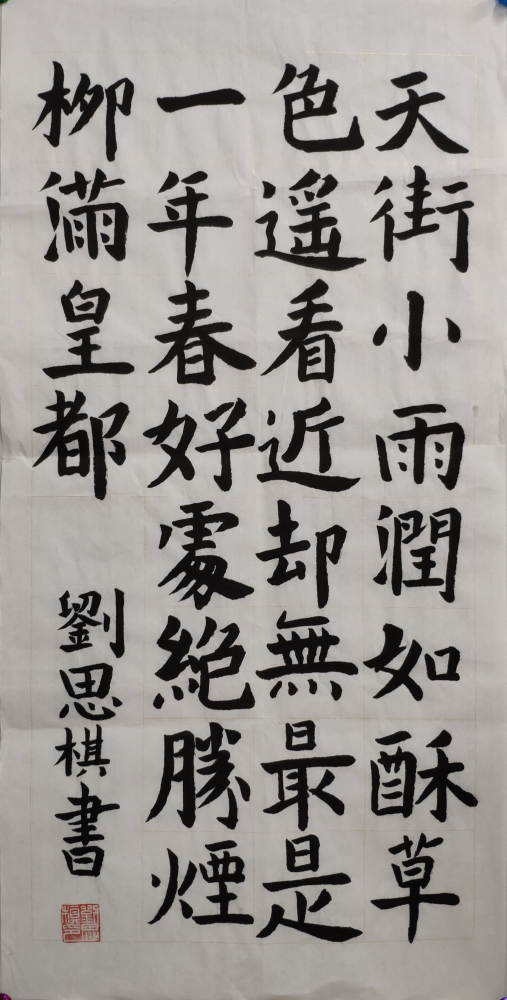 天街小雨潤如酥草
色遥看近却無最是
一年春好處絕勝煙
柳滿皇都
劉思棋書